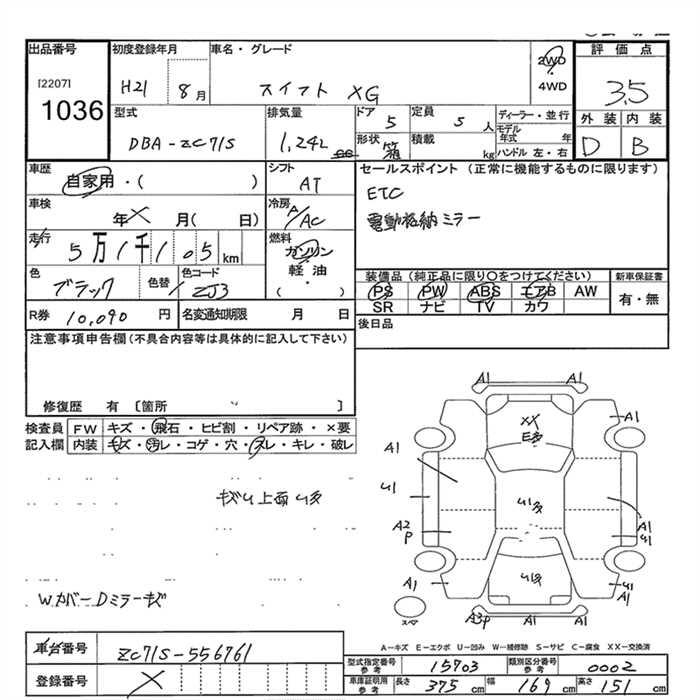 出品番号 初度登録年月 車名・グレード 評価点
[2207] H21 8月 スイフト XG 2WD 4WD 3.5
1036
型式 排気量 ドア 5 定員 5 人 ディーラー・並行 外装 内装
DBA-ZC71S 1,242 cc 形状 箱 積載 kg モデル年式 年 D B
ハンドル 左・右
車歴 シフト セールスポイント (正常に機能するものに限ります)
自家用・( ) AT ETC
車検 冷房 電動格納ミラー
年 X 月( 日) A/AC
走行 燃料
5万1千105km ガソリン・軽油・( )
色 色替 色コード 装備品(純正品に限り○をつけてください) 新車保証書
ブラック ZJ3 PS PW ABS エアB AW 有・無
SR ナビ TV カワ
R券 10,090 円 名変通知期限 月 日 後日品
注意事項申告欄(不具合内容等は具体的に記入して下さい)
修復歴 有 〔箇所 〕
検査員 FW キズ・飛石・ヒビ割・リペア跡・×要
記入欄 内装 キズ・汚レ・コゲ・穴・スレ・キレ・破レ
A1 A1
XX A1
E多
A1
キズU上面U多 U1 U1多
A2 P A1 U1
A1 U多 U1 A1
WカバーDミラーキズ
A3P A1 A1
A-キズ E-エクボ U-凹み W-補修跡 S-サビ C-腐食 XX-交換済
車台番号 ZC71S-556761
型式指定番号 参考 15703 類別区分番号 参考 0002
登録番号 X
車庫証明用 参考 長さ 375 cm 幅 169 cm 高さ 151 cm